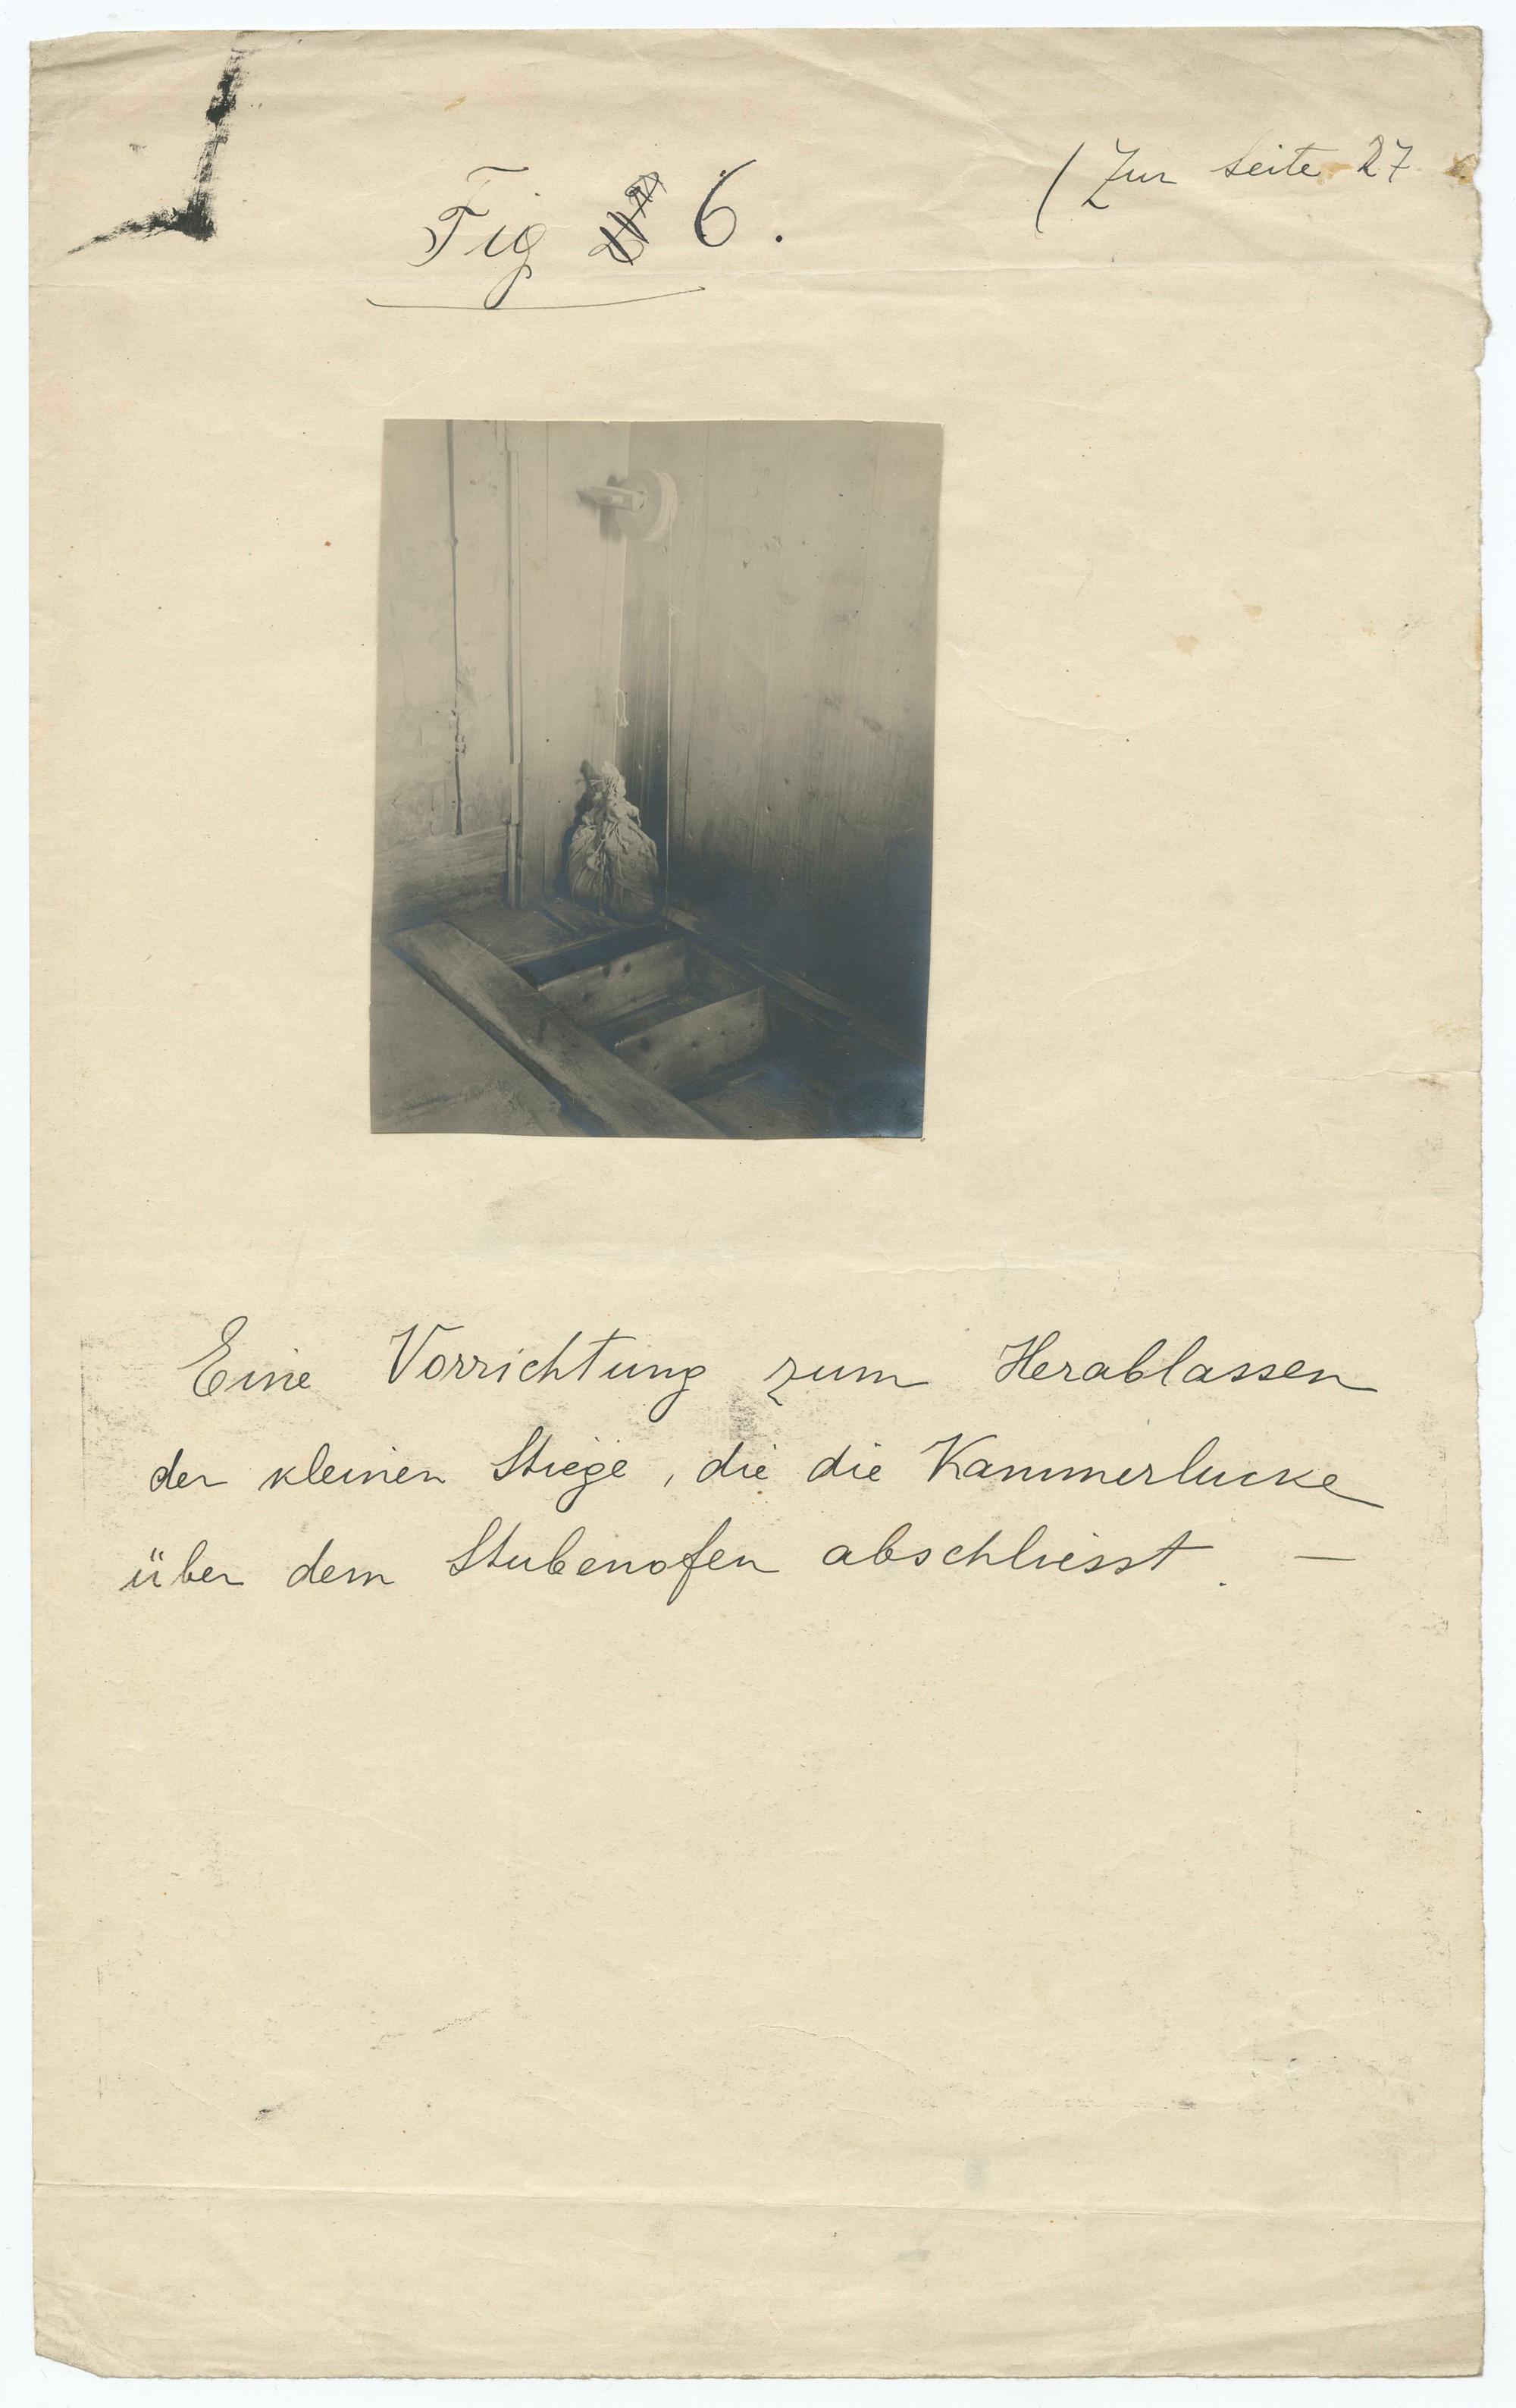 (Zur Seite 27
Fig 6.
Eine Vorrichtung zum Herablassen
der kleinen Stiege, die die Kammerlucke
über dem Stubenofen abschliesst. —